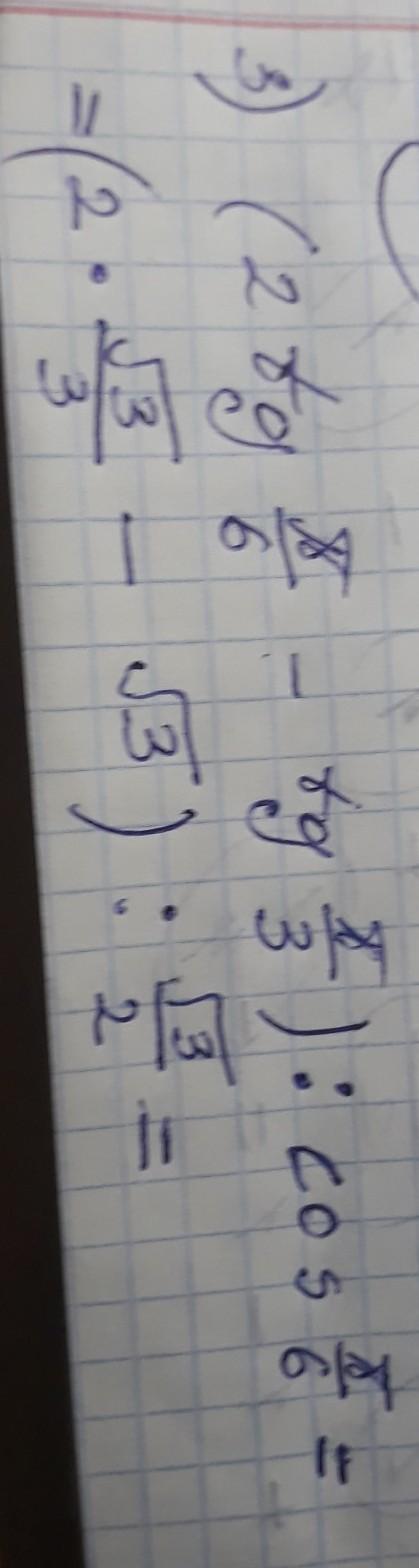 3) (2 tg π/6 - tg π/3) : cos π/6 =
= (2 · √3/3 - √3) : √3/2 =